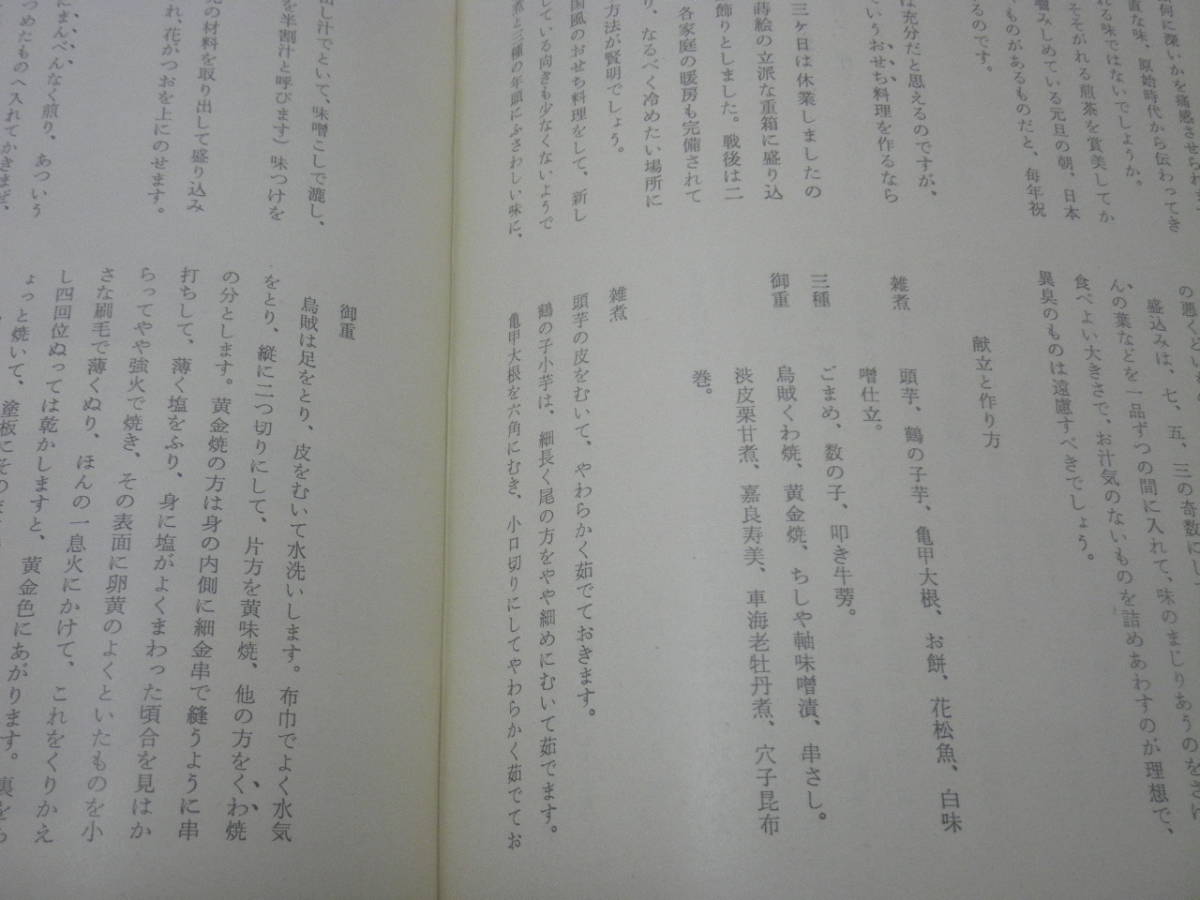 何に深いかを痛感させられ
直な味、原始時代から伝わってき
れる味ではないでしようか。
そそがれる煎茶を賞美してか
噛みしめている元旦の朝、日本
ものがあるものだと、毎年祝
るのです。
は充分だと思えるのですが、
ていうおせち料理を作るなら
三ヶ日は休業しましたの
蒔絵の立派な重箱に盛り込
飾りとしました。戦後は二
各家庭の暖房も完備されて
り、なるべく冷めたい場所に
方法が賢明でしょう。
国風のおせち料理をして、新し
している向きも少なくないようで
煮と三種の年頭にふさわしい味に、
の悪くといも
盛込みは、七、五、三の奇数にし
んの葉などを一品ずつの間に入れて、味のまじりあうのをさけ
食べよい大きさで、お汁気のないものを詰めあわすのが理想で、
異臭のものは遠慮すべきでしょう。
献立と作り方
雑煮　頭芋、鶴の子芋、亀甲大根、お餅、花松魚、白味
噌仕立。
三種　ごまめ、数の子、叩き牛蒡。
御重　烏賊くわ焼、黄金焼、ちしや軸味噌漬、串さし。
渋皮栗甘煮、嘉良寿美、車海老牡丹煮、穴子昆布
巻。
雑煮
頭芋の皮をむいて、やわらかく茹でておきます。
鶴の子小芋は、細長く尾の方をやや細めにむいて茹でます。
亀甲大根を六角にむき、小口切りにしてやわらかく茹でてお
出し汁でといて、味噌こしで漉し、
を半割汁と呼びます）味つけを
の材料を取り出して盛り込み
れ、花がつおを上にのせます。
にまんべんなく煎り、あつい
つめたものへ入れてかきまぜ、
御重
烏賊は足をとり、皮をむいて水洗いします。布巾でよく水気
をとり、縦に二つ切りにして、片方を黄味焼、他の方をくわ焼
の分とします。黄金焼の方は身の内側に細金串で縫うように串
打ちして、薄く塩をふり、身に塩がよくまわった頃合を見はか
らってやや強火で焼き、その表面に卵黄のよくといたものを小
さな刷毛で薄くぬり、ほんの一息火にかけて、これをくりかえ
し四回位ぬっては乾かしますと、黄金色にあがります。裏をち
ょっと焼いて、塗板にその